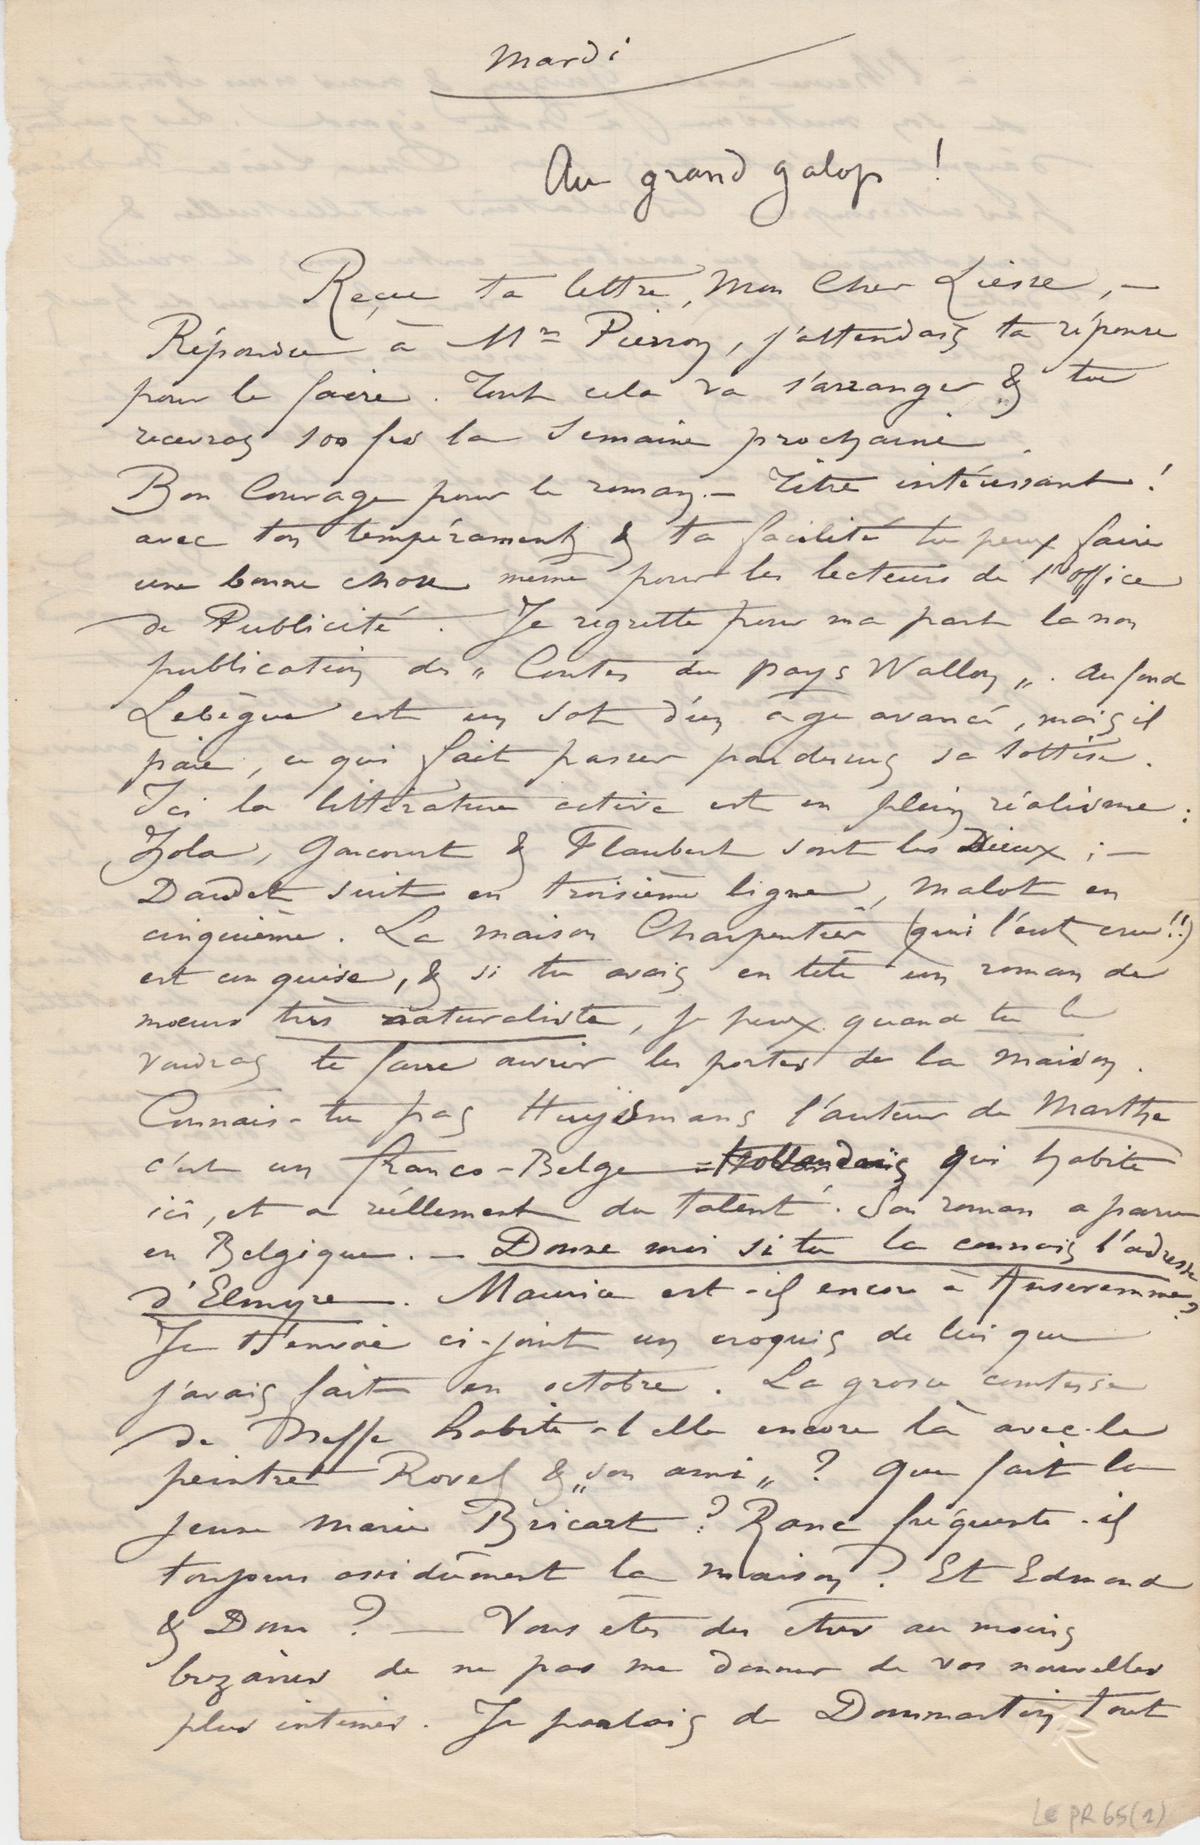 Mardi
Au grand galop !
Reçu ta lettre, Mon Cher Liesse, —
Répondu à Mr Pierron, j'attendais ta réponse
pour le faire. Tout cela va s'arranger & tu
recevras 100 frs la Semaine prochaine.
Bon Courage pour le roman. — Titre intéressant !
avec ton tempérament & ta facilité tu peux faire
une bonne chose même pour les lecteurs de l'office
de Publicité. Je regrette pour ma part la non
publication des „ Contes du pays Wallon „. Au fond
Lebègue est un sot d'un âge avancé, mais il
paie, ce qui fait passer par dessus sa sottise.
Ici la littérature active est en plein réalisme :
Zola, Goncourt & Flaubert sont les Dieux ; —
Daudet suit en troisième ligne, Malot en
cinquième. La maison Charpentier (qui l'eut cru !!)
est conquise, & si tu avais en tête un roman de
moeurs très naturaliste, je peux quand tu le
voudras te faire ouvrir les portes de la maison.
Connais-tu pas Huÿsmans l'auteur de Marthe
c'est un franco-Belge =Hollandais qui habite
ici, et a réellement du talent. Son roman a paru
en Belgique. — Donne moi si tu la connais l'adresse
d'Elmyre. Maurice est-il encore à Anseremme ?
Je t'envoie ci-joint un croquis de lui que
j'avais fait en octobre. La grosse comtesse
de Neffe habite-t'elle encore là avec le
peintre Rovel & „son ami„ ? Que fait la
jeune Marie Bricart ? Ranc fréquente-il
toujours assidûment la maison ? Et Edmond
& Dom ? — Vous êtes des êtres au moins
bizarres de ne pas me donner de vos nouvelles
plus intimes. Je parlais de Dommartin tout
LEPR 65(1)